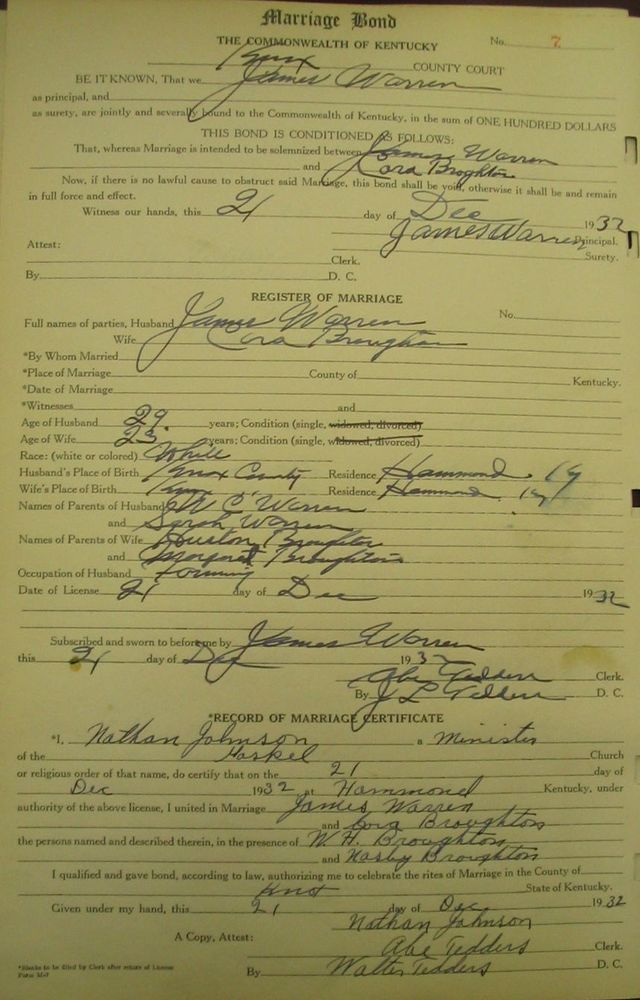 Marriage Bond
THE COMMONWEALTH OF KENTUCKY No. 7
Knox COUNTY COURT
BE IT KNOWN, That we James Warren
as principal, and
as surety, are jointly and severally bound to the Commonwealth of Kentucky, in the sum of ONE HUNDRED DOLLARS
THIS BOND IS CONDITIONED AS FOLLOWS:
That, whereas Marriage is intended to be solemnized between James Warren
and Cora Broghton
Now, if there is no lawful cause to obstruct said Marriage, this bond shall be void, otherwise it shall be and remain
in full force and effect.
Witness our hands, this 21 day of Dec 1932
James Warren Principal.
Attest: Surety.
Clerk.
By D. C.
REGISTER OF MARRIAGE
Full names of parties, Husband James Warren No.
Wife Cora Broughton
*By Whom Married
*Place of Marriage County of Kentucky.
*Date of Marriage
*Witnesses and
Age of Husband 29. years; Condition (single, widowed, divorced)
Age of Wife 23. years; Condition (single, widowed, divorced)
Race: (white or colored) White
Husband's Place of Birth Knox County Residence Hammond Ky
Wife's Place of Birth Knox " Residence Hammond Ky
Names of Parents of Husband W C Warren
and Sarah Warren
Names of Parents of Wife Huston Broughton
and Margaret Broughton
Occupation of Husband Farming
Date of License 21 day of Dec 1932
Subscribed and sworn to before me by James Warren
this 21 day of Dec 1932
Abe Tedders Clerk.
By J L Tedders D. C.
*RECORD OF MARRIAGE CERTIFICATE
*I, Nathan Johnson a minister
of the Church
or religious order of that name, do certify that on the 21 day of
Dec 1932 at Hammond Kentucky, under
authority of the above license, I united in Marriage James Warren
and Cora Broughton
the persons named and described therein, in the presence of W. H. Broughton
and Hasby Broughton
I qualified and gave bond, according to law, authorizing me to celebrate the rites of Marriage in the County of
Knox State of Kentucky.
Given under my hand, this 21 day of Dec 1932
Nathan Johnson
A Copy, Attest: Abe Tedders Clerk.
By Walter Tedders D. C.
*Blanks to be filled by Clerk after return of License
Form M-7